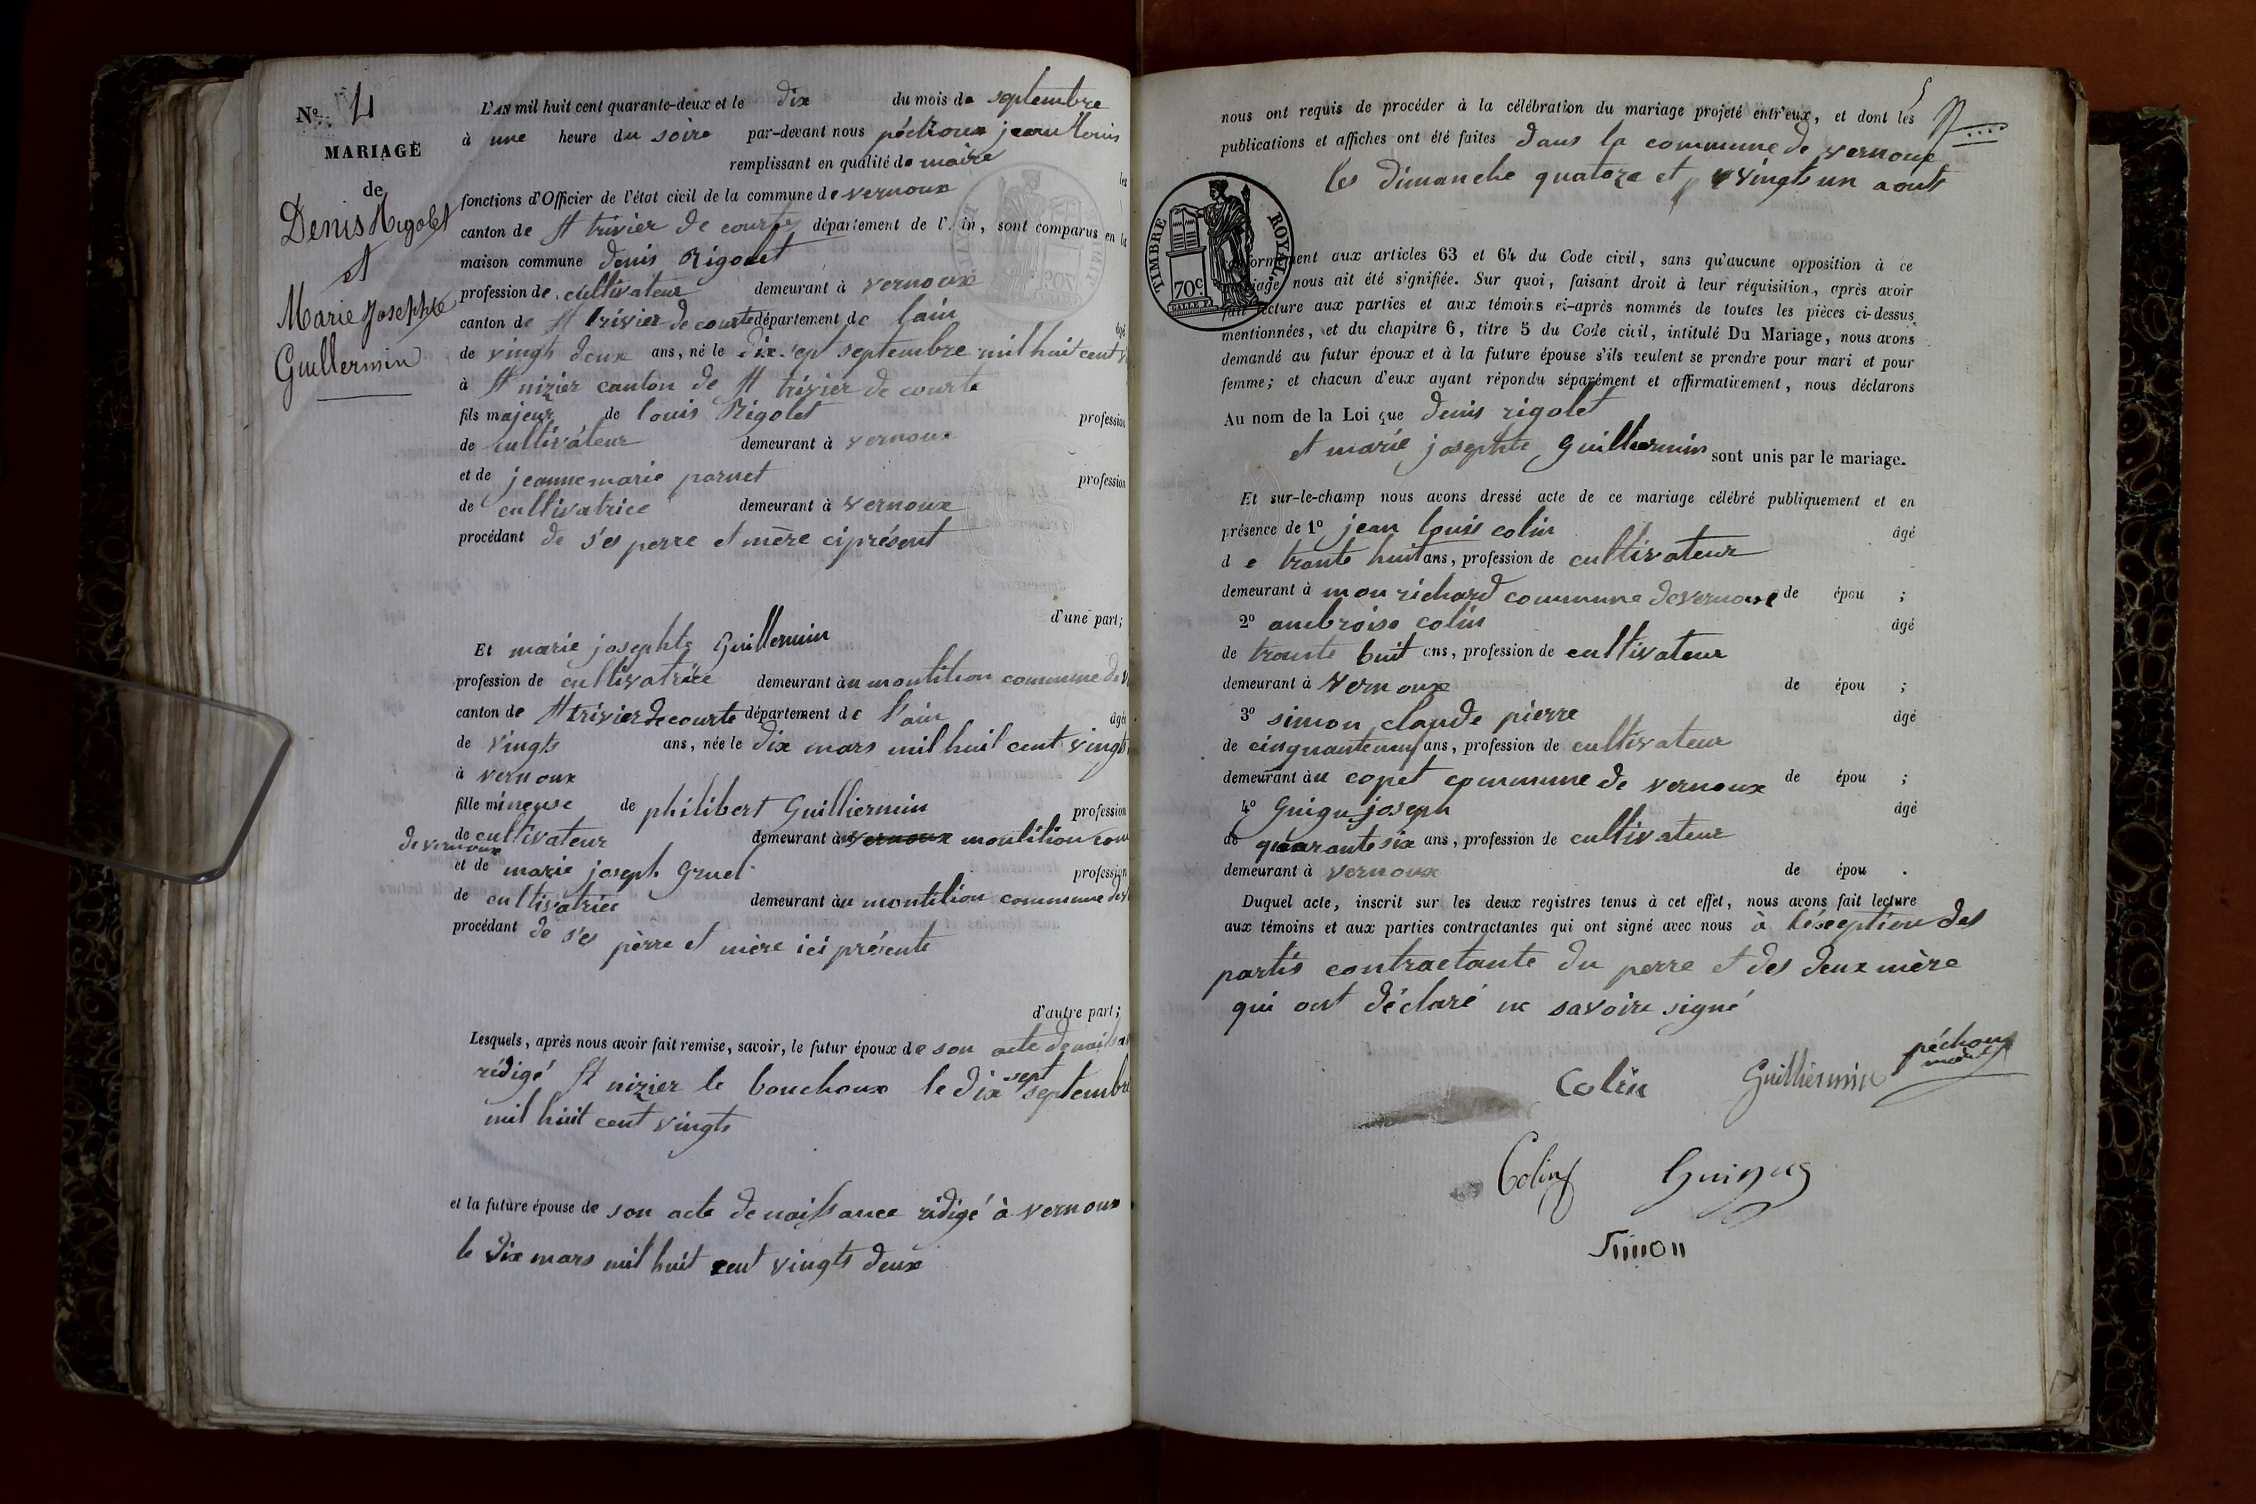 No 4
MARIAGE
de
Denis Rigolet
et
Marie Josephte
Guillermin
L'AN mil huit cent quarante-deux et le dix du mois de septembre
à une heure du soire par-devant nous péchoux jean louis
remplissant en qualité de maire
les
fonctions d'Officier de l'état civil de la commune de vernoux
canton de St trivier de courte département de l'Ain, sont comparus en la
maison commune denis Rigolet
profession de cultivateur demeurant à vernoux
canton de St trivier de courte département de lain
âgé
de vingts deux ans, né le dix sept septembre mil huit cent
à St nizier canton de St trivier de courte
fils majeur de louis Rigolet profession
de cultivateur demeurant à vernoux
et de jeanne marie parnet profession
de cultivatrice demeurant à vernoux
procédant de s'es perre et mère ciprésent
d'une part;
Et marie josephte Guillermin
profession de cultivatrice demeurant àu montilion commune de
canton de St trivier de courte département de l'ain âgée
de vingts ans, née le dix mars mil huit cent vingts
à vernoux
fille mineuse de philibert Guilliermin profession
de cultivateur demeurant àu vernoux montilion com
de vernoux
et de marie joseph Gruel profession
de cultivatrice demeurant àu montilion commune de
procédant de s'es pèrre et mère ici présente
d'autre part;
Lesquels, après nous avoir fait remise, savoir, le futur époux de son acte de naissa
rédigé St nizier le bouchoux le dix sept septembre
mil huit cent vingts
et la future épouse de son acte de naissance rédigé à vernoux
le dix mars mil huit cent vingts deux
5
nous ont requis de procéder à la célébration du mariage projeté entr'eux, et dont les
publications et affiches ont été faites dans la commune de vernoux
les dimanche quatorze et vingts un aouts
TIMBRE ROYAL
70c
conformément aux articles 63 et 64 du Code civil, sans qu'aucune opposition à ce
mariage nous ait été signifiée. Sur quoi, faisant droit à leur réquisition, après avoir
fait lecture aux parties et aux témoins ci-après nommés de toutes les pièces ci-dessus
mentionnées, et du chapitre 6, titre 5 du Code civil, intitulé Du Mariage, nous avons
demandé au futur époux et à la future épouse s'ils veulent se prendre pour mari et pour
femme; et chacun d'eux ayant répondu séparément et affirmativement, nous déclarons
Au nom de la Loi que denis rigolet
et marie josephte Guilliermin sont unis par le mariage.
Et sur-le-champ nous avons dressé acte de ce mariage célébré publiquement et en
présence de 1o jean louis colin âgé
de trante huit ans, profession de cultivateur
demeurant à mon richard commune de vernoux de épou ;
2o ambroise colin âgé
de trante huit ans, profession de cultivateur
demeurant à vernoux de épou ;
3o simon claude pierre âgé
de cinquante neuf ans, profession de cultivateur
demeurant àu copet commune de vernoux de épou ;
4o Guigu joseph âgé
de quarante six ans, profession de cultivateur
demeurant à vernoux de épou .
Duquel acte, inscrit sur les deux registres tenus à cet effet, nous avons fait lecture
aux témoins et aux parties contractantes qui ont signé avec nous à l'éception des
partis contractante du perre et des deux mère
qui ont déclaré ne savoire signé
péchoux
Colin Guilliermin maire
Colin Guigue
Simon